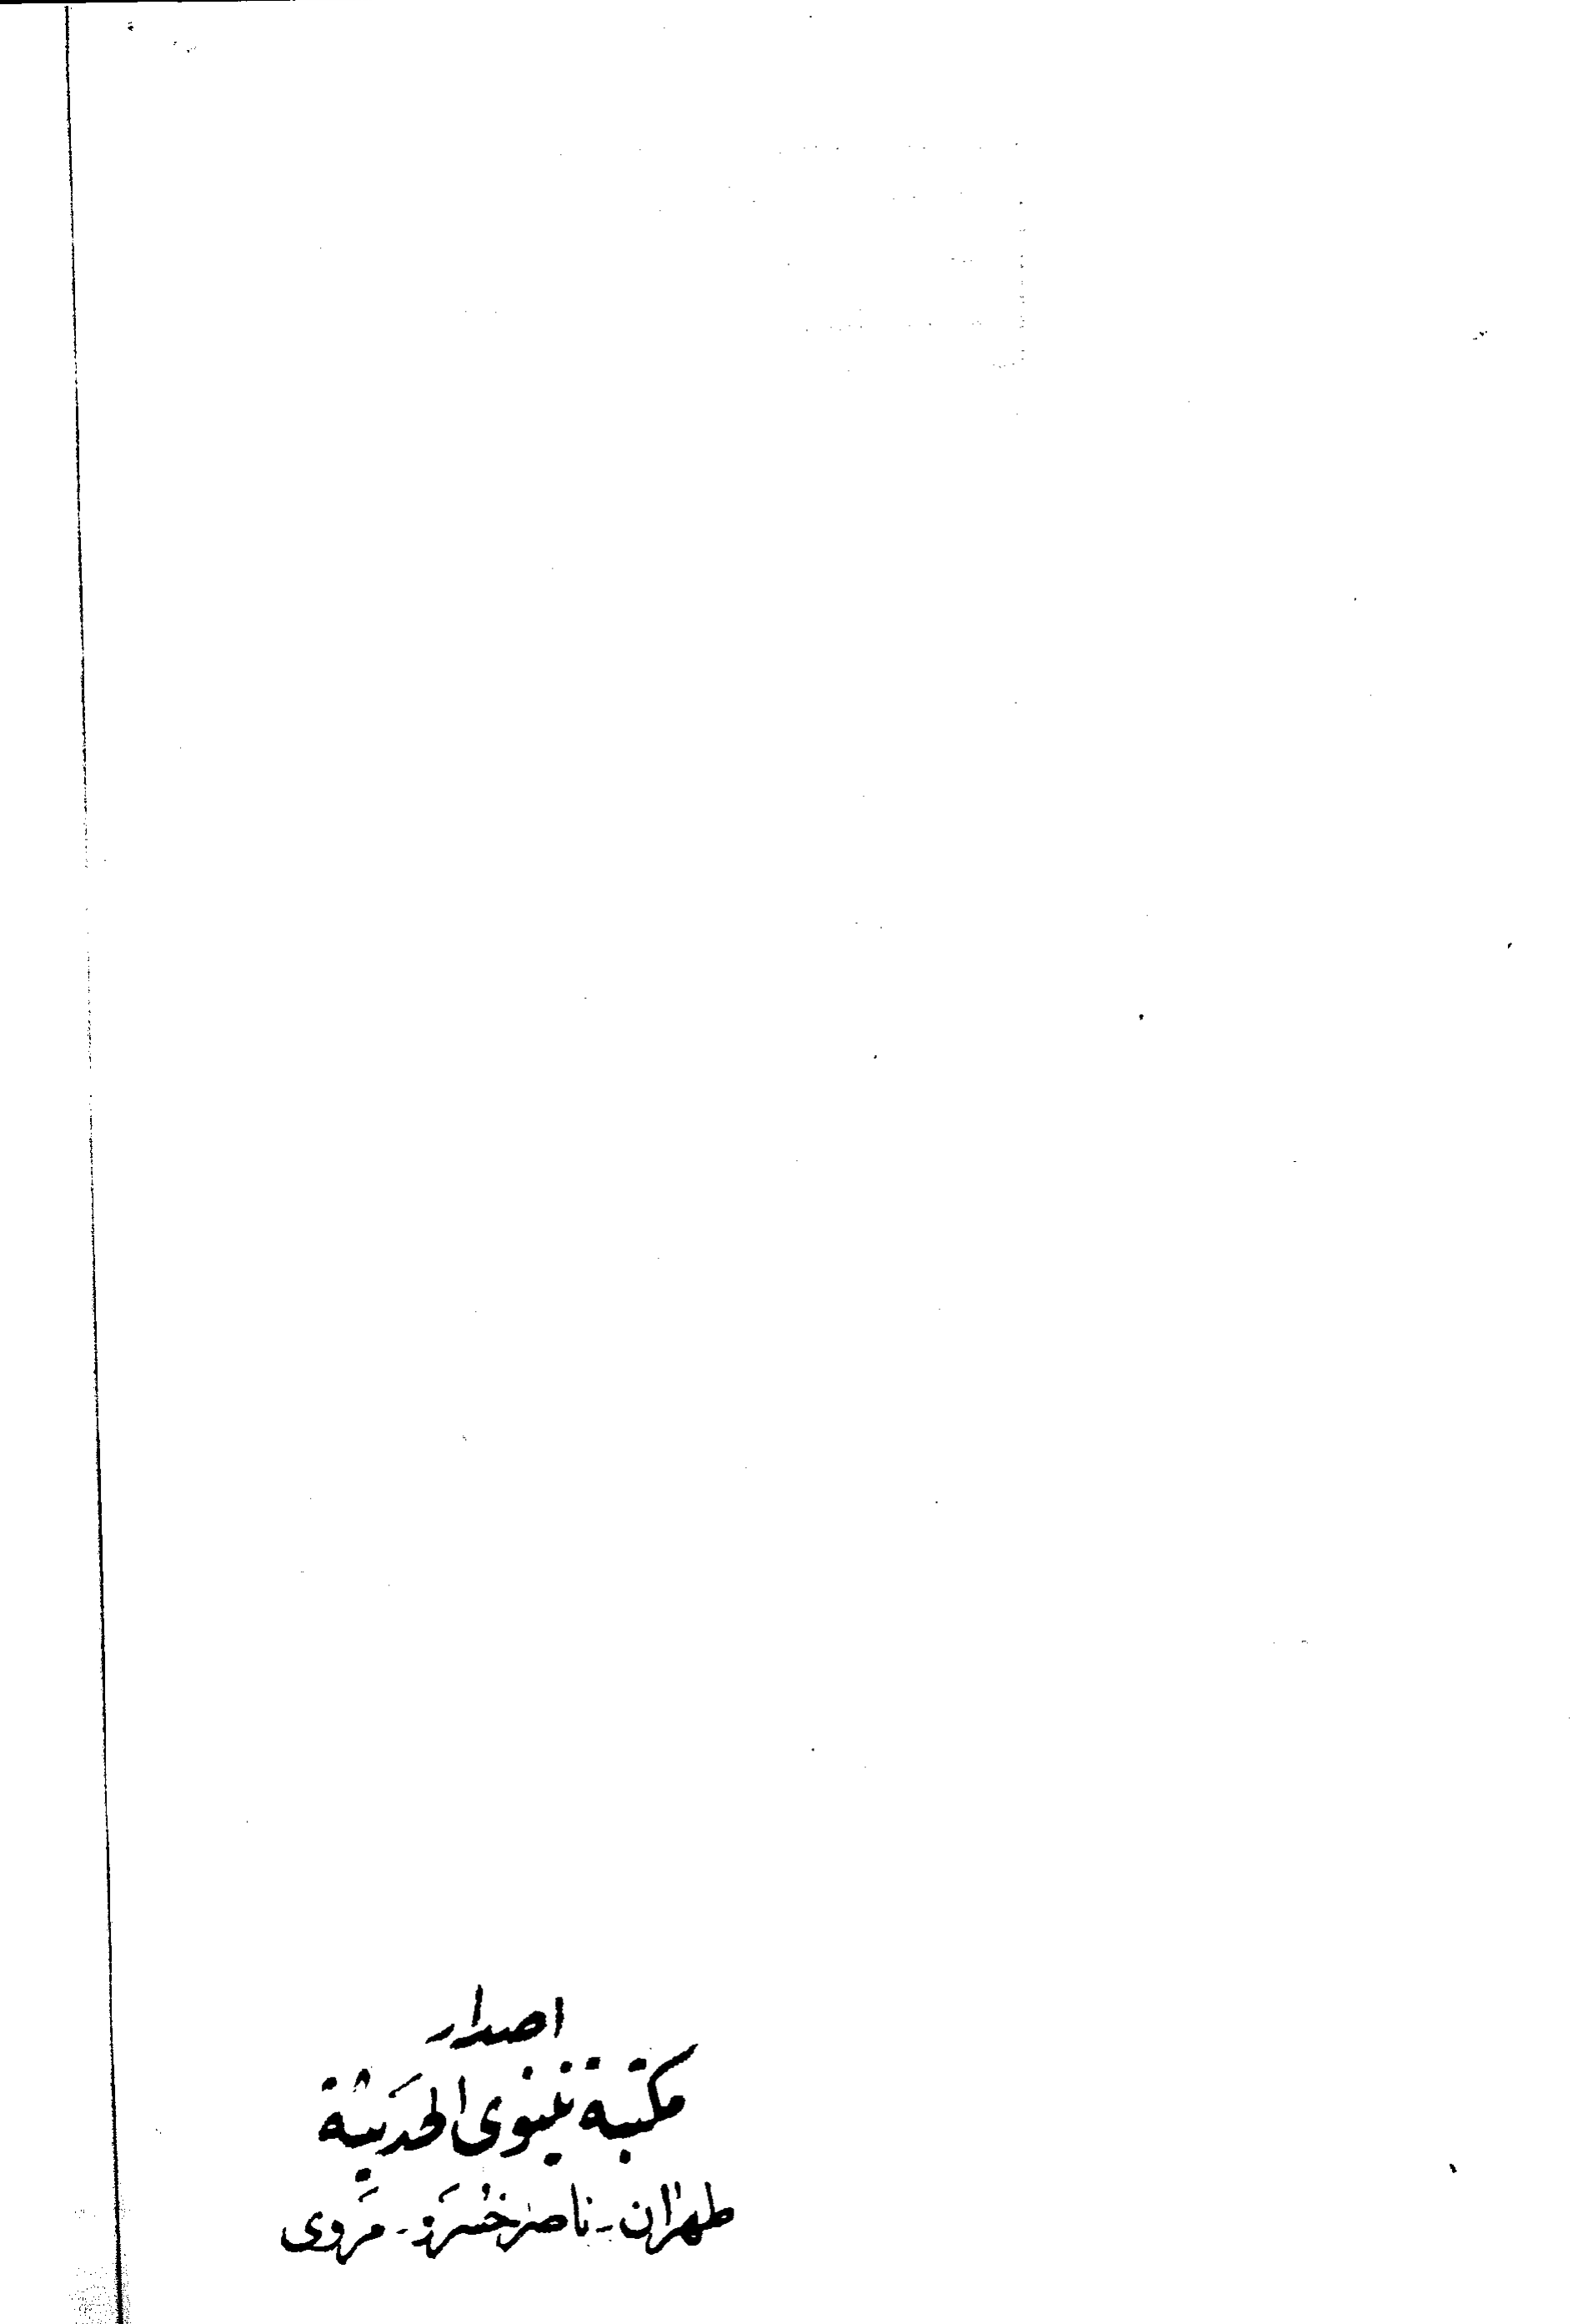 اصدار
مكتبة نينوى الحديثة
طهران - ناصر خسرو - مروى